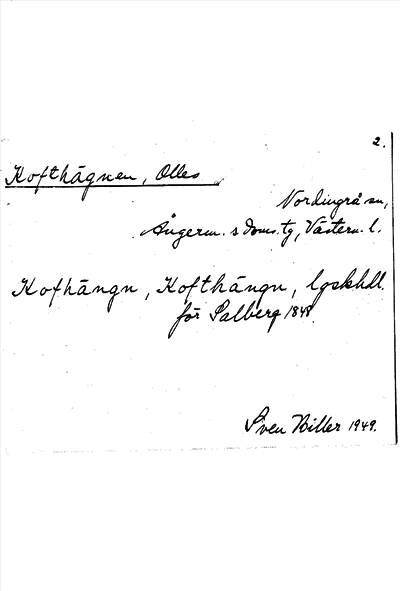 2.
Kofthägnen, Olles
Nordingrå sn,
Ångerm. s doms.tg, Västern. l.
Kofhängn, Kofthängn, lgskhdl.
för Salberg 1848.
Sven Biller 1949.